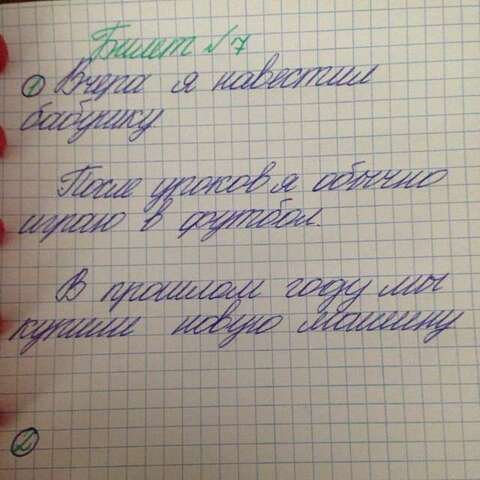 Билет №7
① Вчера я навестил
бабушку.
После уроков я обычно
играю в футбол.
В прошлом году мы
купили новую машину
②